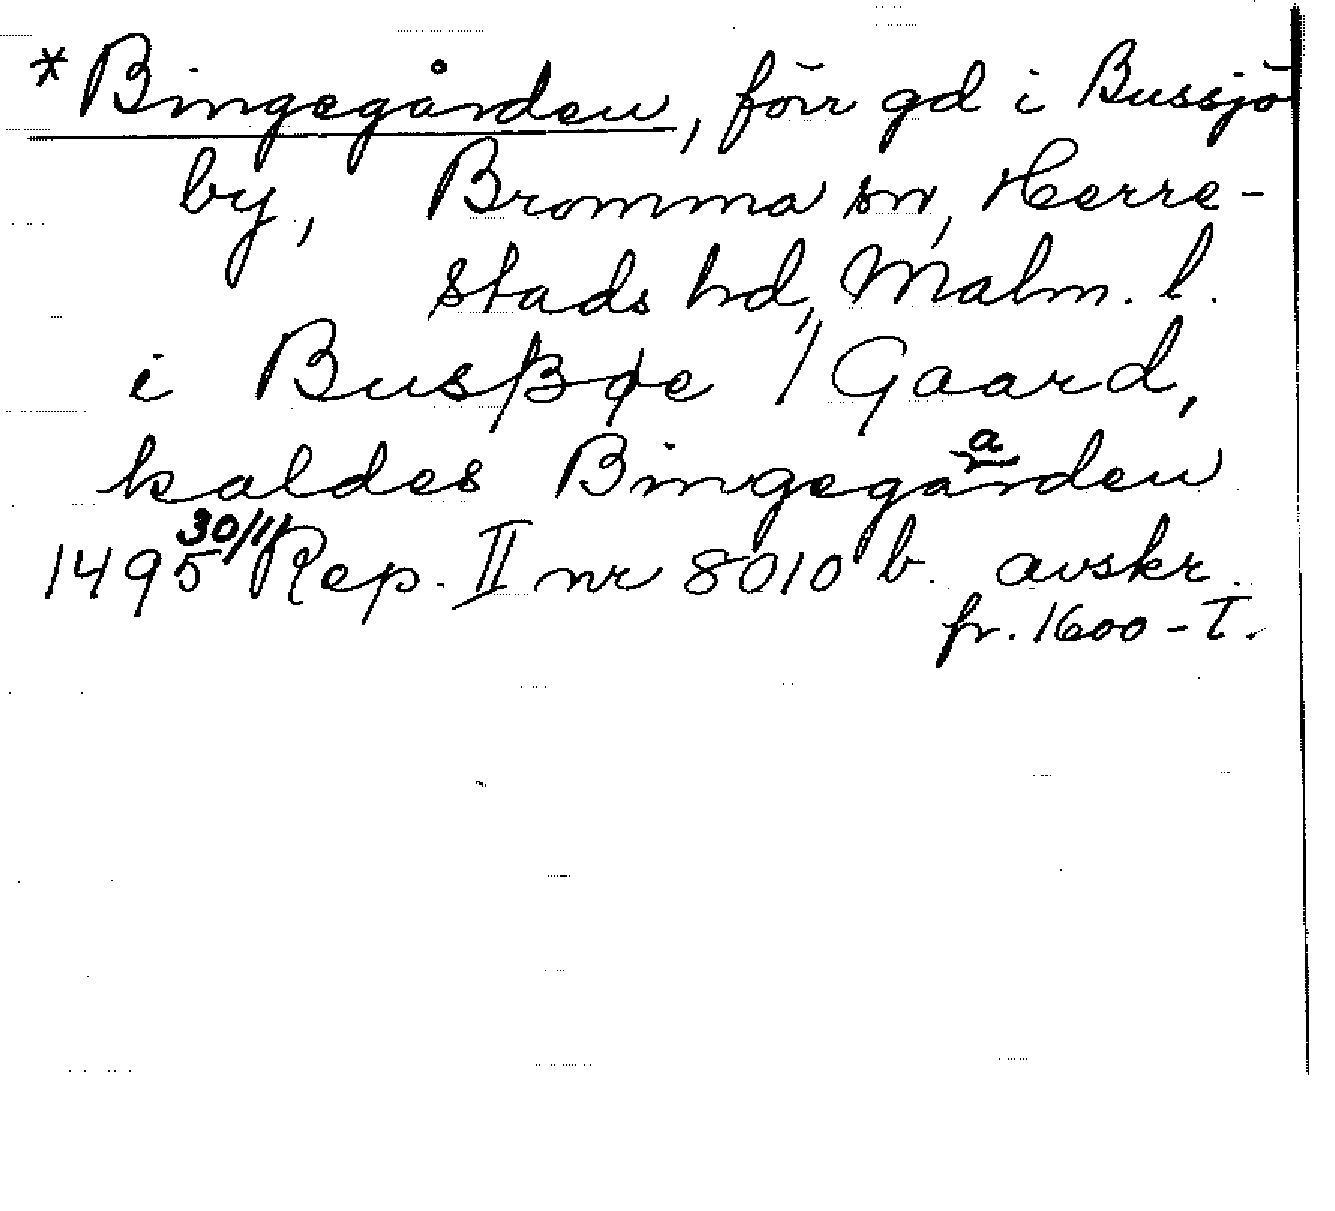 *Bingegården, förr gd i Bussjö
by, Bromma sn, Herre-
stads hd, Malm. l.
i Busßøe 1 Gaard,
kaldes Bingegaarden
1495 30/11 Rep. II nr 8010 b. avskr.
fr. 1600-T.